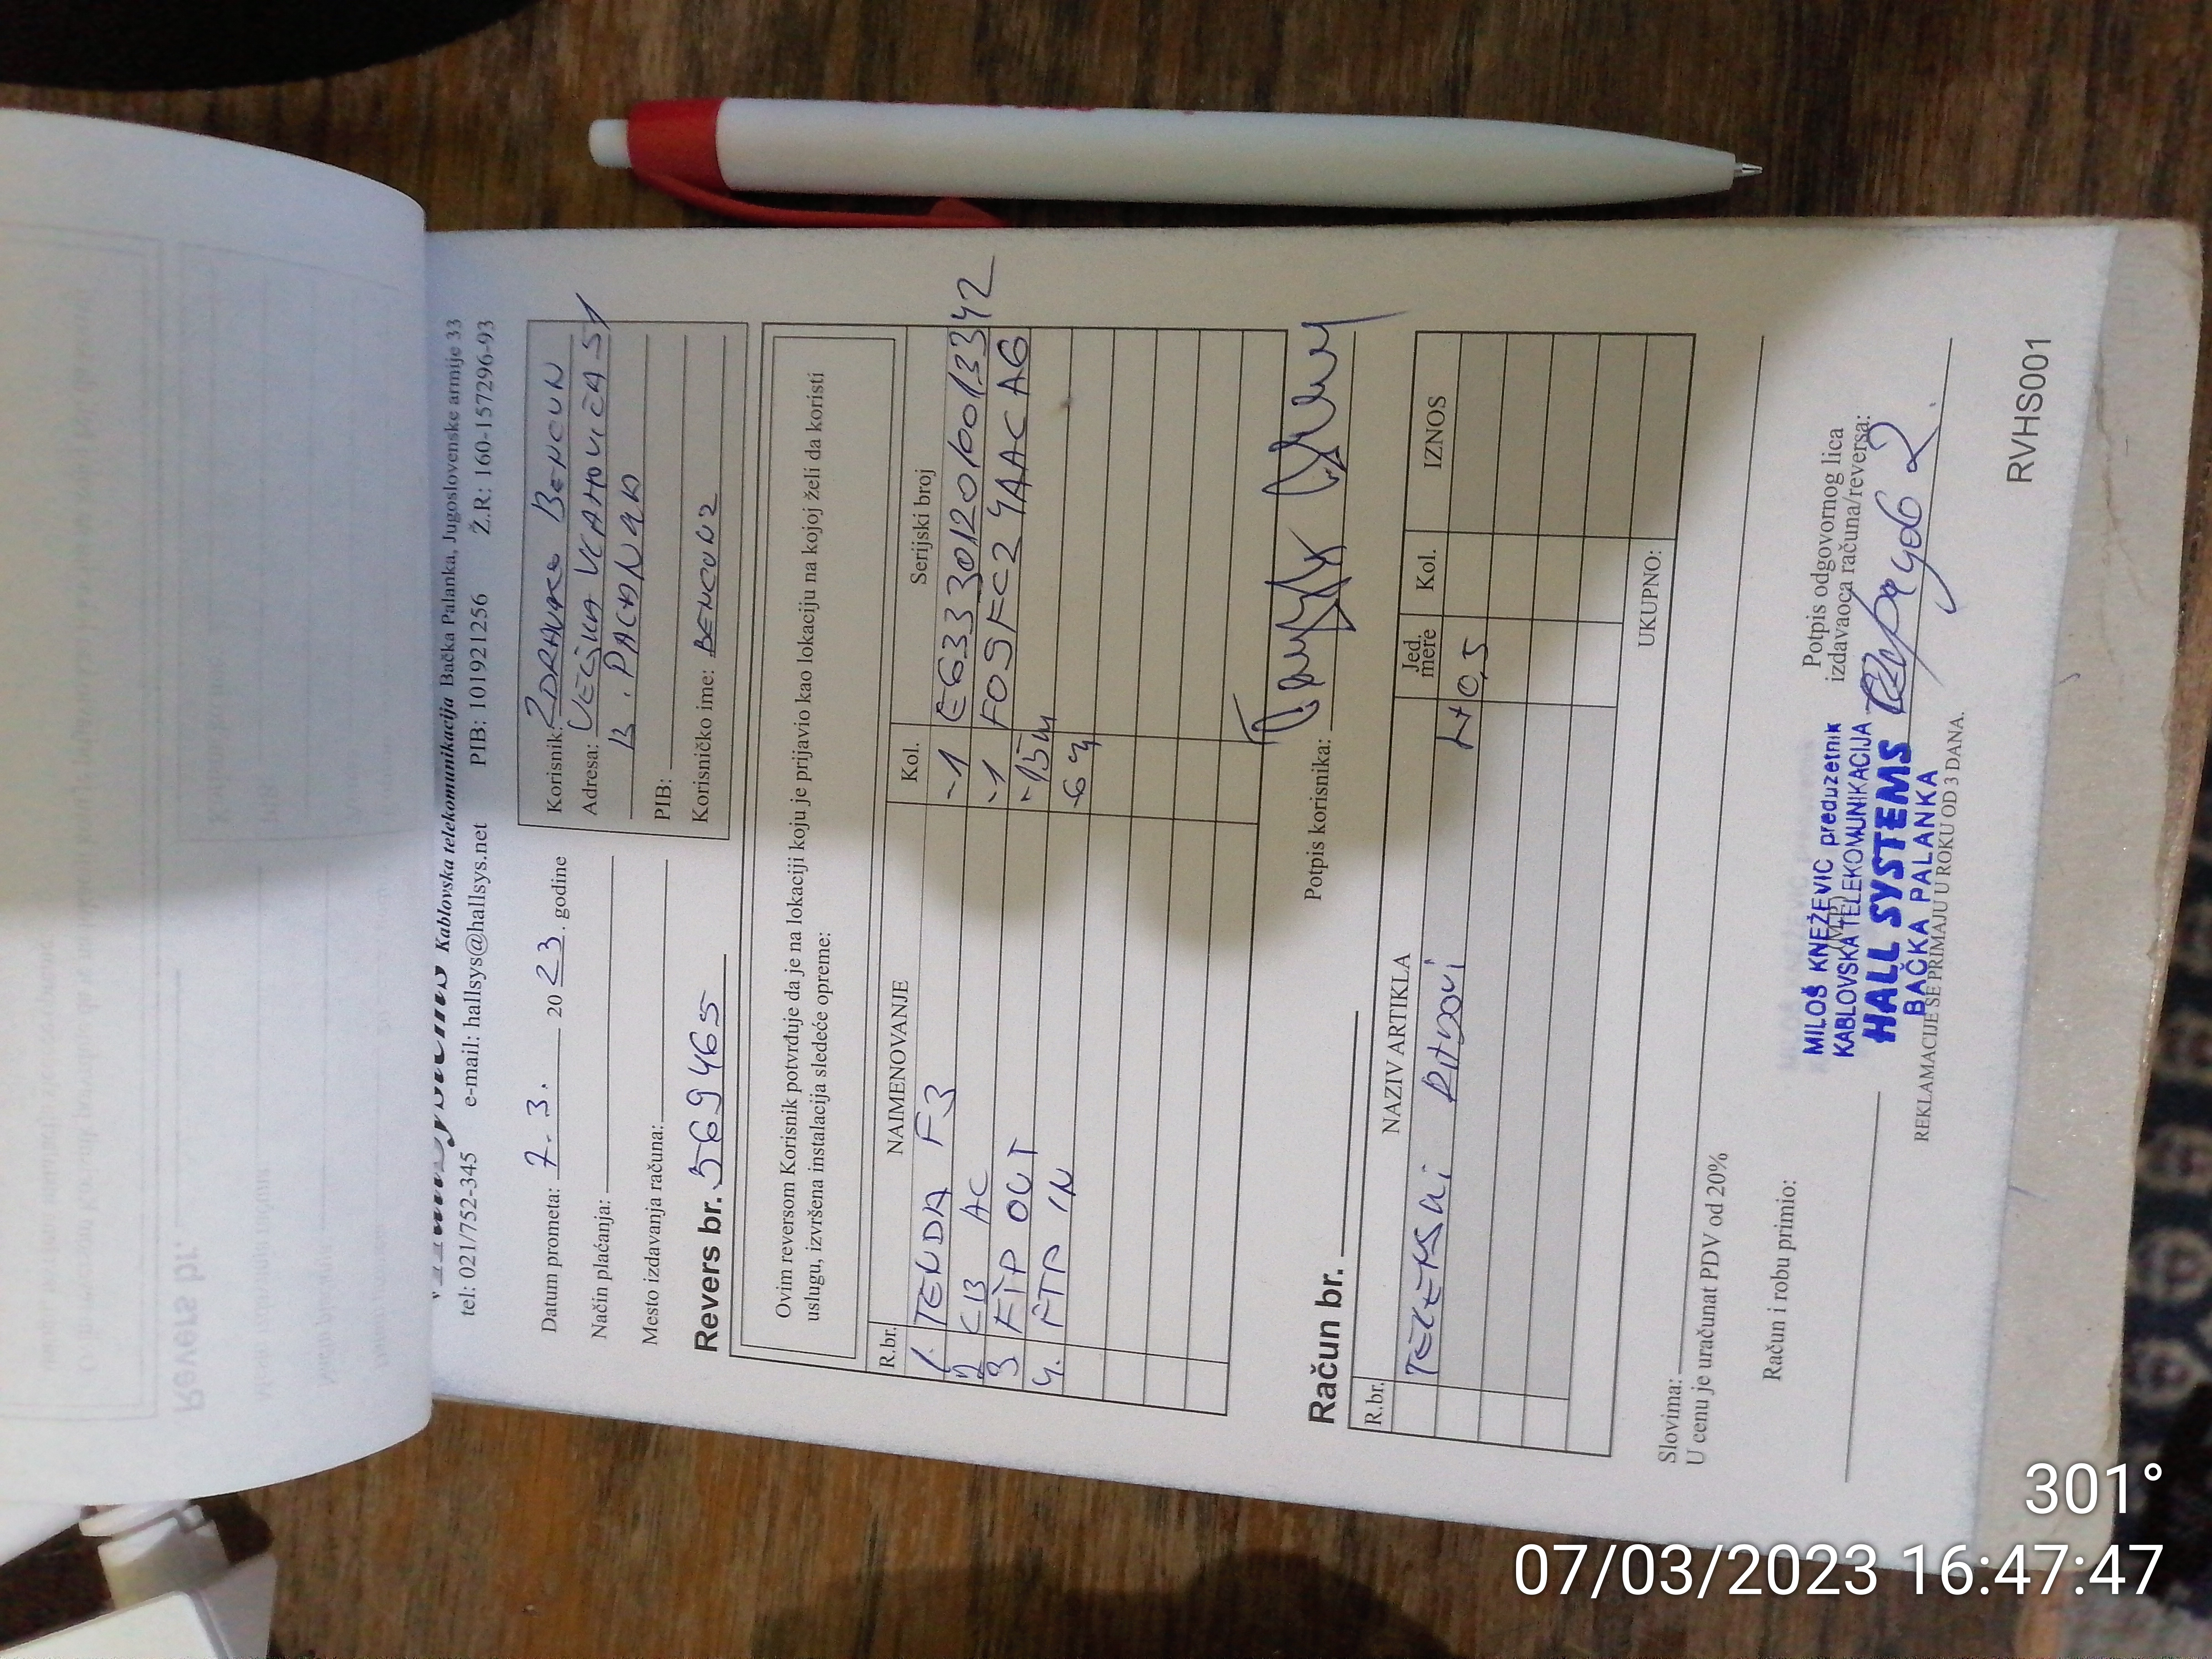 Kablovska telekomunikacija Bačka Palanka, Jugoslovenske armije 33
tel: 021/752-345 e-mail: hallsys@hallsys.net PIB: 101921256 Ž.R.: 160-157296-93
Datum prometa: 7.3. 2023. godine
Način plaćanja:
Mesto izdavanja računa:
Revers br. 569465
Korisnik: ZDRAVKO BENCUN
Adresa: VELJKA VLAHOVIĆA 51
B. PALANKA
PIB:
Korisničko ime: BENCUNZ
Ovim reversom Korisnik potvrđuje da je na lokaciji koju je prijavio kao lokaciju na kojoj želi da koristi
uslugu, izvršena instalacija sledeće opreme:
R.br. NAIMENOVANJE Kol. Serijski broj
1. TENDA F3 ~1 E6333012010013342
2 AC ~1
3 FTP OUT ~15m
4. FTP IN
Potpis korisnika:
Račun br.
R.br. NAZIV ARTIKLA Jed. mere Kol. IZNOS
0,5
UKUPNO:
Slovima:
U cenu je uračunat PDV od 20%
Račun i robu primio:
Potpis odgovornog lica
izdavaoca računa/reversa:
MILOŠ KNEŽEVIĆ preduzetnik
KABLOVSKA TELEKOMUNIKACIJA
HALL SYSTEMS
BAČKA PALANKA
REKLAMACIJE SE PRIMAJU U ROKU OD 3 DANA.
RVHS001
Revers br.
301°
07/03/2023 16:47:47